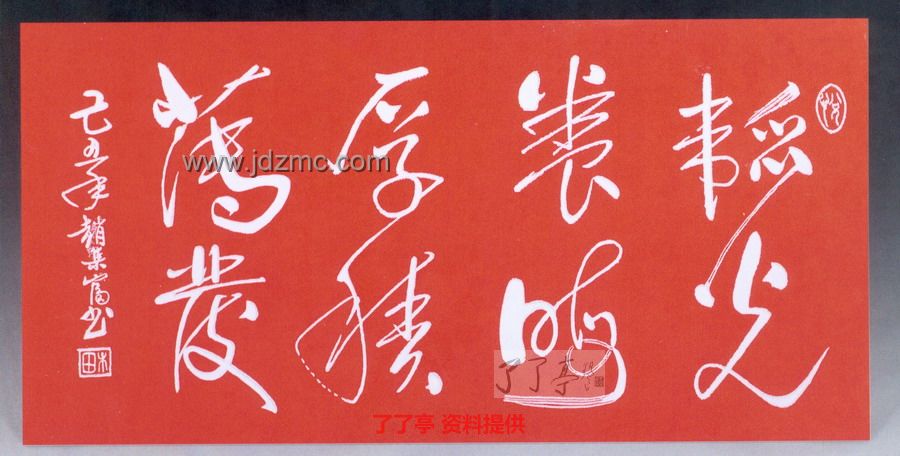 韜光
養晦
厚積
薄發
己丑年 趙集富书
www.jdzmc.com
了了亭
了了亭 资料提供